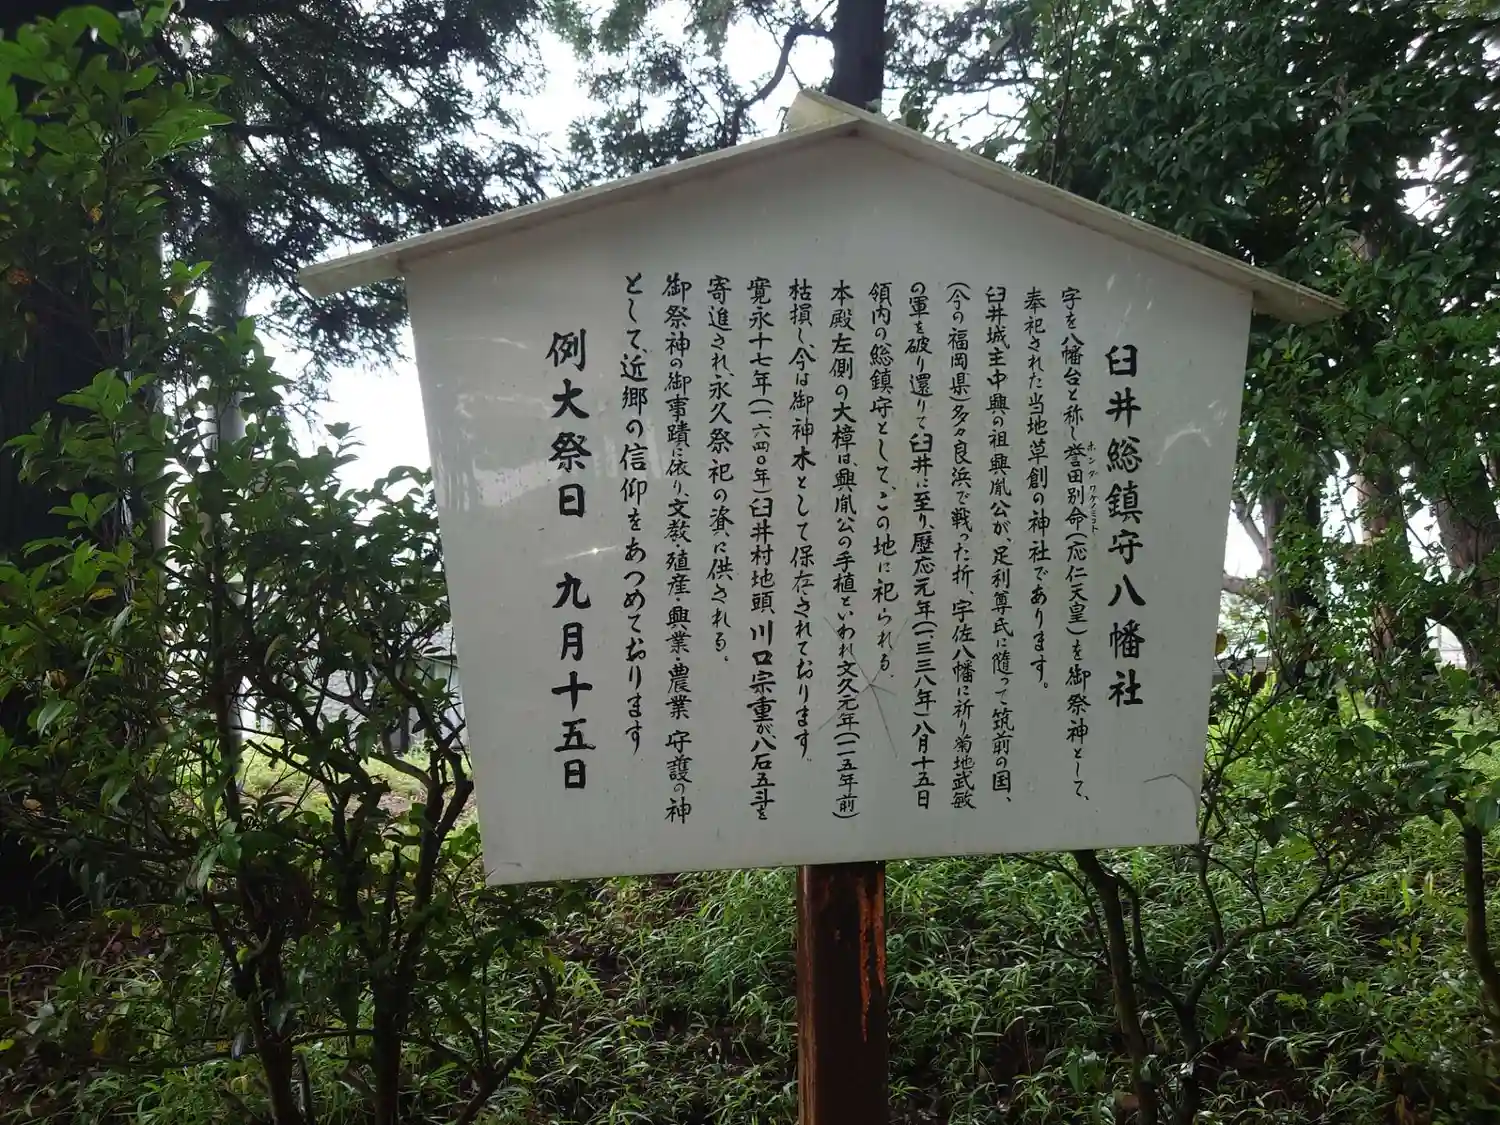 臼井総鎮守八幡社
字を八幡台と称し誉田別命(応仁天皇)を御祭神として、
ホンダワケノミコト
奉祀された当地草創の神社であります。
臼井城主中興の祖興胤公が、足利尊氏に隨って筑前の国、
(今の福岡県)多々良浜で戦った折、宇佐八幡に祈り菊地武敏
の軍を破り還りて臼井に至り、歴応元年(一三三八年)八月十五日
領内の総鎮守として、この地に祀られる。
本殿左側の大樟は、興胤公の手植といわれ文久元年(一一五年前)
枯損し、今は御神木として保存されております。
寛永十七年(一、六四〇年)臼井村地頭、川口宗重が八石五斗を
寄進され、永久祭祀の資に供される。
御祭神の御事蹟に依り、文教・殖産・興業・農業、守護の神
として、近郷の信仰をあつめております
例大祭日 九月十五日